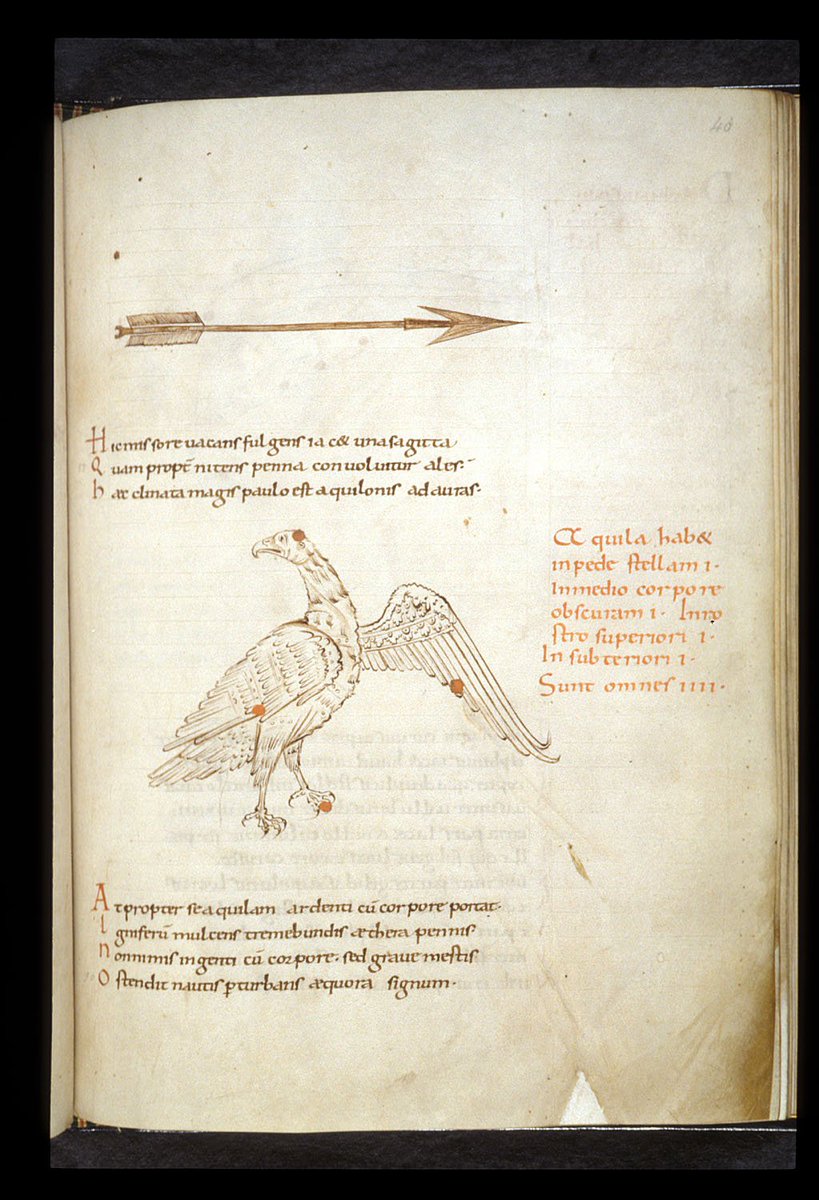 40
Hic missore vacans fulgens iac& una sagitta
Quam propt̄ nitens penna convolvitur ales·
haec clinata magis paulo est aquilonis ad auras·
Aquila hab&
in pede stellam ı·
In medio corpore
obscuram ı· In ro
stro superiori ı·
In subteriori ı·
Sunt omnes ıııı·
At propter se aquilam ardenti cū corpore portat·
Igniferū mulcens tremebundis aethera pennis·
non nimis ingenti cū corpore· sed grave mestis
ostendit nautis p̄turbans aequora signum·